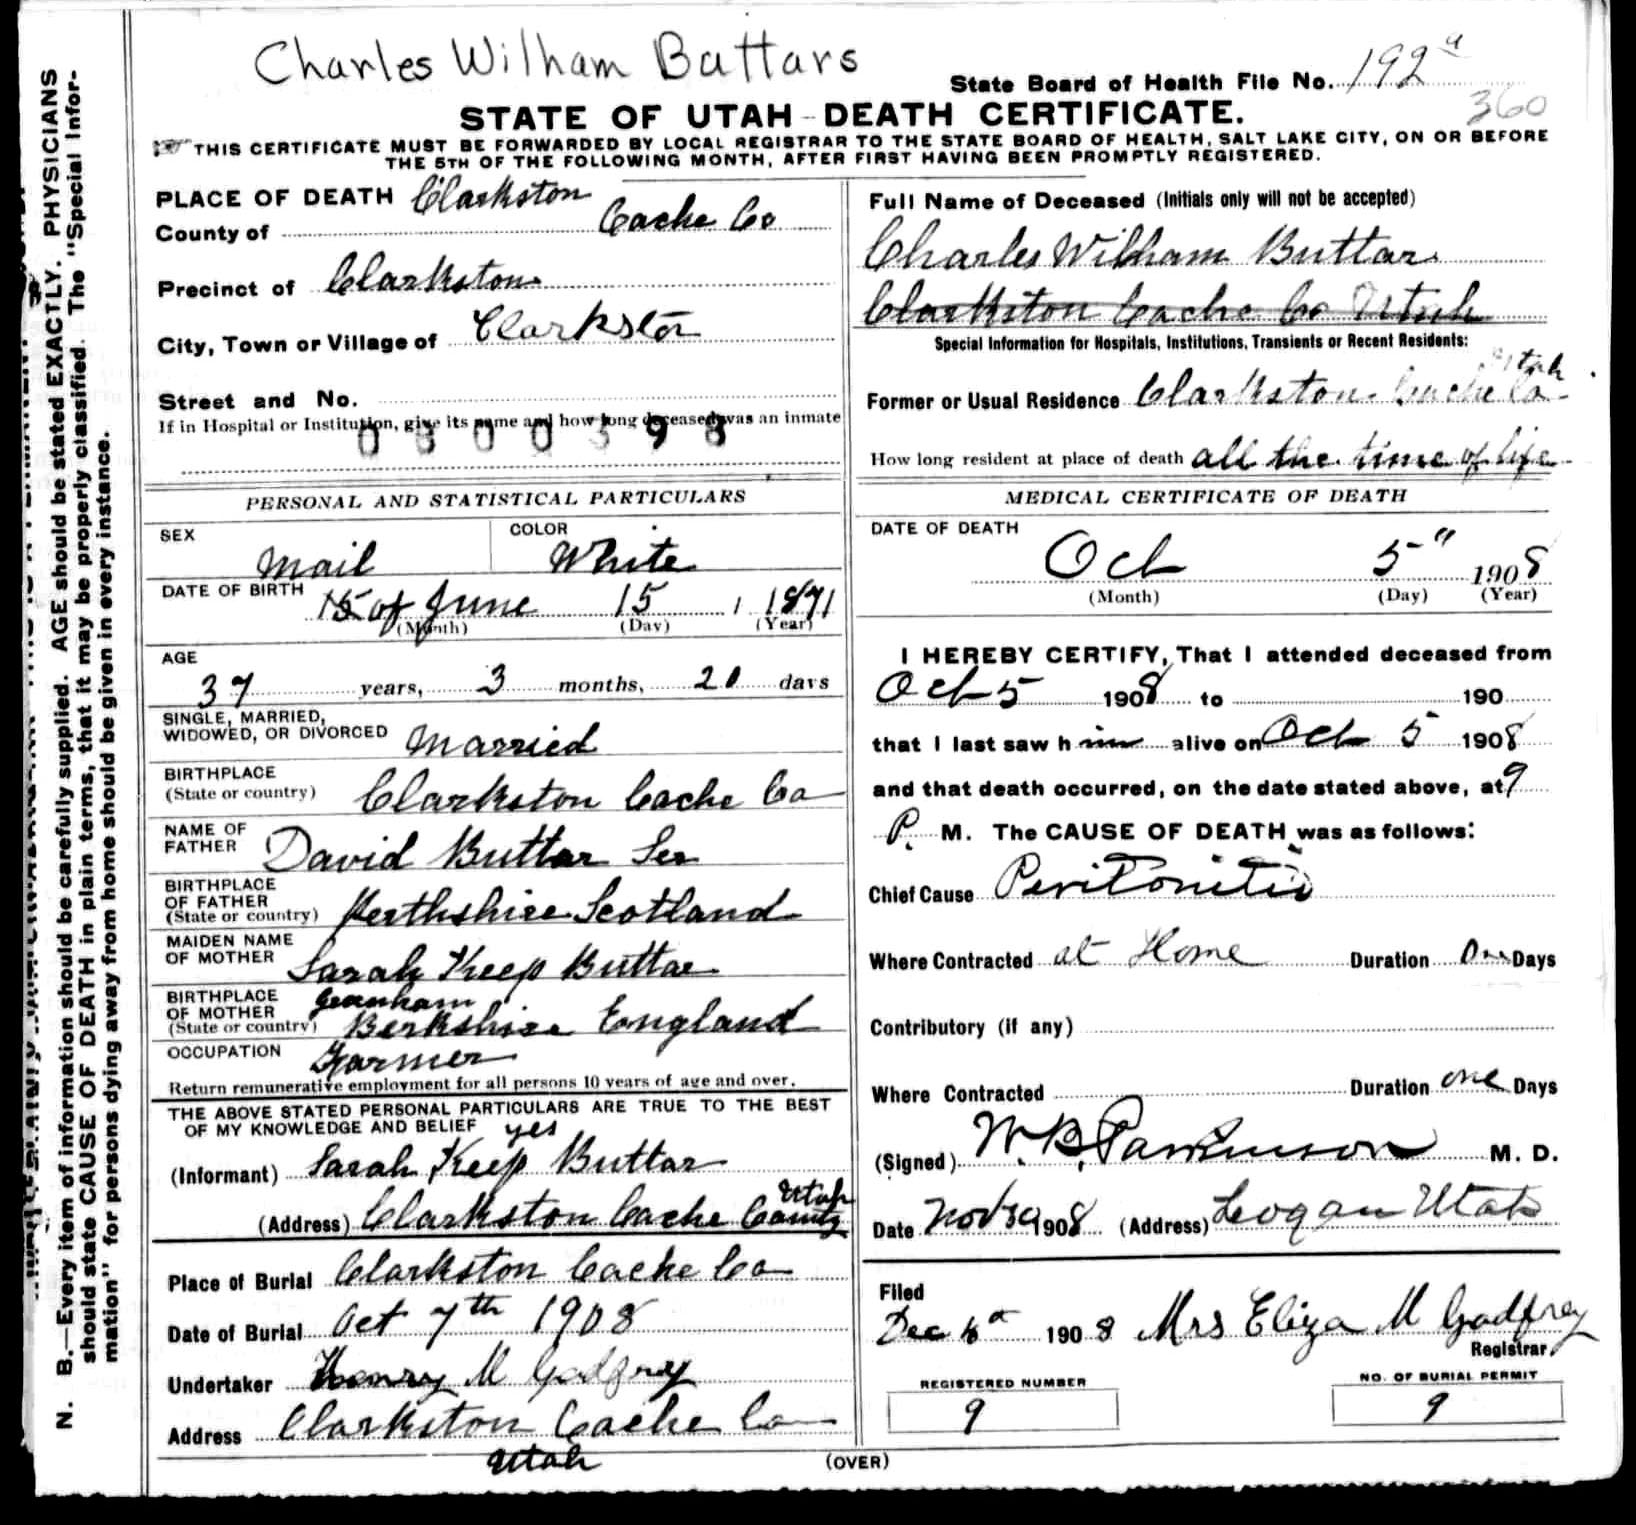 Charles Wilham Buttars
State Board of Health File No. 192a
360
STATE OF UTAH - DEATH CERTIFICATE.
THIS CERTIFICATE MUST BE FORWARDED BY LOCAL REGISTRAR TO THE STATE BOARD OF HEALTH, SALT LAKE CITY, ON OR BEFORE
THE 5TH OF THE FOLLOWING MONTH, AFTER FIRST HAVING BEEN PROMPTLY REGISTERED.
PLACE OF DEATH Clarkston
County of Cache Co
Precinct of Clarkston
City, Town or Village of Clarkston
Street and No.
If in Hospital or Institution, give its name and how long deceased was an inmate
PERSONAL AND STATISTICAL PARTICULARS
SEX Mail COLOR White
DATE OF BIRTH 15 of June 15 1871
(Month) (Day) (Year)
AGE
37 years, 3 months, 20 days
SINGLE, MARRIED,
WIDOWED, OR DIVORCED Married
BIRTHPLACE
(State or country) Clarkston Cache Co
NAME OF
FATHER David Buttar Ser
BIRTHPLACE
OF FATHER
(State or country) Perthshire Scotland
MAIDEN NAME
OF MOTHER Sarah Keep Buttar
BIRTHPLACE
OF MOTHER
(State or country) Berkshire England
OCCUPATION Farmer
Return remunerative employment for all persons 10 years of age and over.
THE ABOVE STATED PERSONAL PARTICULARS ARE TRUE TO THE BEST
OF MY KNOWLEDGE AND BELIEF yes
(Informant) Sarah Keep Buttar
(Address) Clarkston Cache County Utah
Place of Burial Clarkston Cache Co
Date of Burial Oct 7th 1908
Undertaker Henry M Godfrey
Address Clarkston Cache Co
Utah
Full Name of Deceased (Initials only will not be accepted)
Charles Wilham Buttar
Clarkston Cache Co Utah
Special Information for Hospitals, Institutions, Transients or Recent Residents:
Former or Usual Residence Clarkston Cache Co Utah
How long resident at place of death all the time of life
MEDICAL CERTIFICATE OF DEATH
DATE OF DEATH
Oct 5" 1908
(Month) (Day) (Year)
I HEREBY CERTIFY, That I attended deceased from
Oct 5 1908 to 190
that I last saw him alive on Oct 5 1908
and that death occurred, on the date stated above, at 9
P. M. The CAUSE OF DEATH was as follows:
Chief Cause Peritonitis
Where Contracted at Home Duration One Days
Contributory (if any)
Where Contracted Duration one Days
(Signed) W.B. Parkinson M. D.
Date Nov 1908 (Address) Logan Utah
Filed
Dec 1908 Mrs Eliza M Godfrey
Registrar.
REGISTERED NUMBER
9
NO. OF BURIAL PERMIT
9
(OVER)
N. B.—Every item of information should be carefully supplied. AGE should be stated EXACTLY. PHYSICIANS
should state CAUSE OF DEATH in plain terms, that it may be properly classified. The "Special Infor-
mation" for persons dying away from home should be given in every instance.